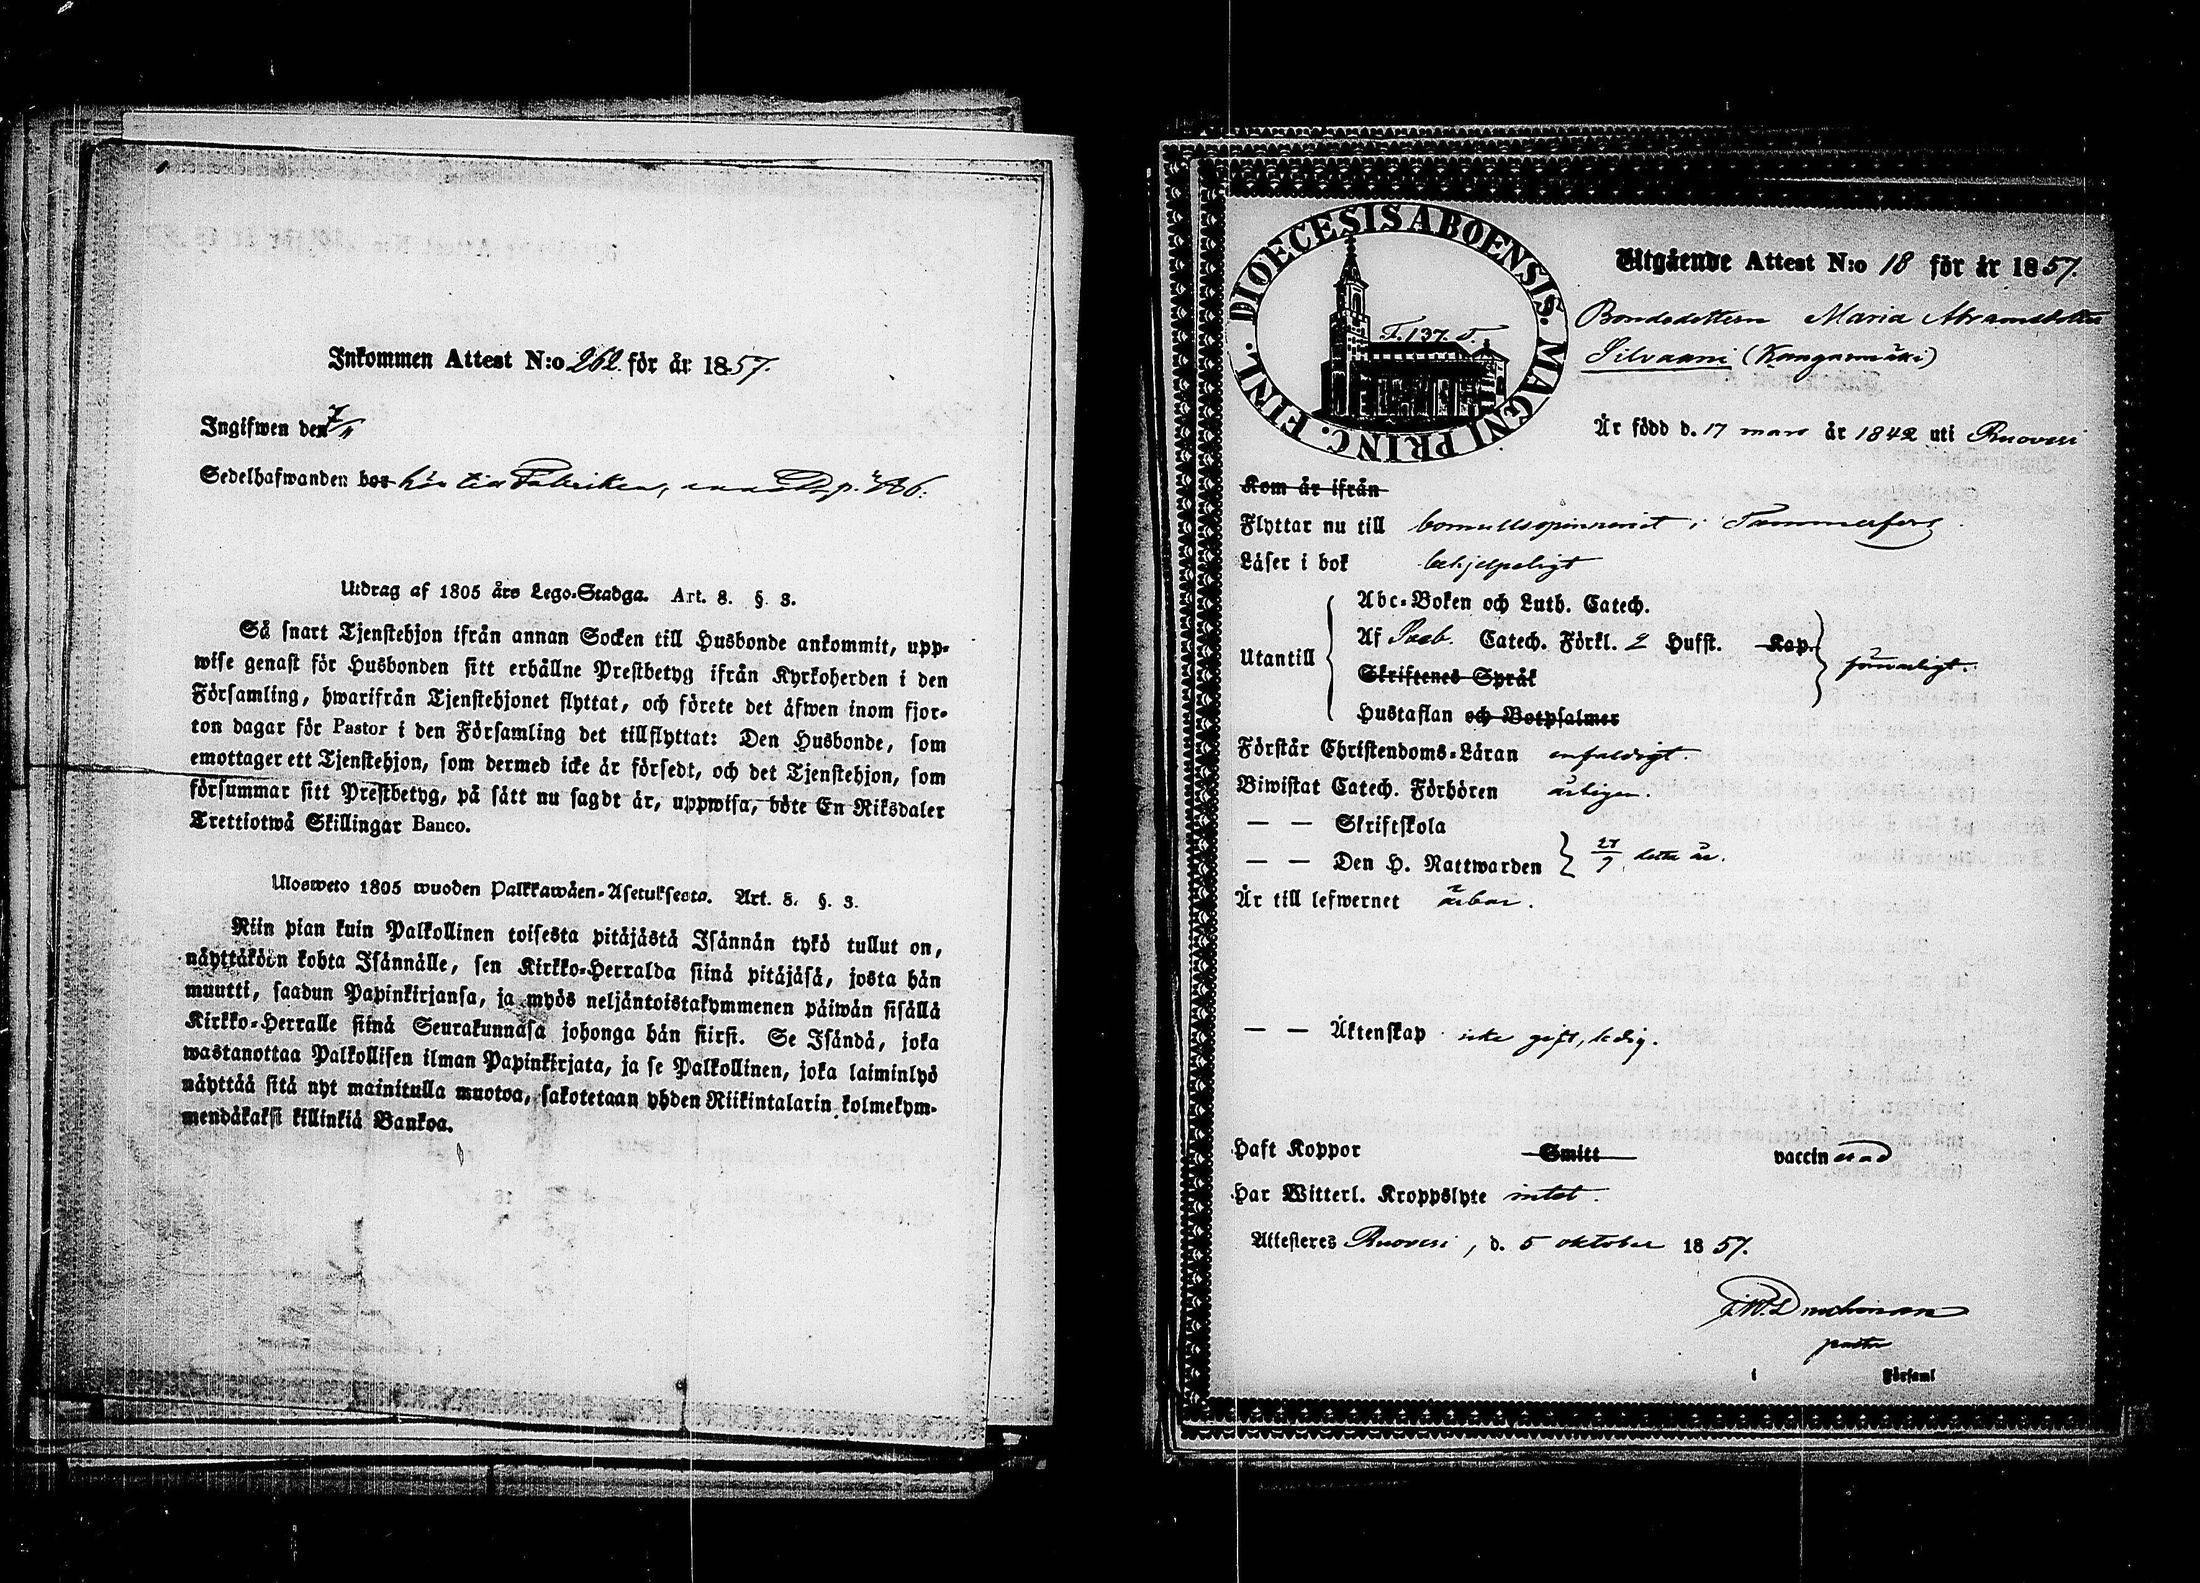 Inkommen Attest N:o 262. för år 1857.
Ingifwen den 7/11
Sedelhafwanden bor hör till Fabriken,
Utdrag af 1805 års Lego-Stadga. Art. 8. §. 3.
Så snart Tjenstehjon ifrån annan Socken till Husbonde ankommit, upp-
wise genast för Husbonden sitt erhållne Prestbetyg ifrån Kyrkoherden i den
Församling, hwarifrån Tjenstehjonet flyttat, och förete det äfwen inom fjor-
ton dagar för Pastor i den Församling det tillflyttat: Den Husbonde, som
emottager ett Tjenstehjon, som dermed icke är försedt, och det Tjenstehjon, som
försummar sitt Prestbetyg, på sätt nu sagdt är, uppwisa, böte En Riksdaler
Trettiotwå Skillingar Banco.
Ulosweto 1805 wuoden Palkkawäen-Asetuksesta. Art. 8. §. 3.
Niin pian kuin Palkollinen toisesta pitäjästä Isännän tykö tullut on,
näyttäköön kohta Isännälle, sen Kirkko-Herralda siinä pitäjäsä, josta hän
muutti, saadun Papinkirjansa, ja myös neljäntoistakymmenen päiwän sisällä
Kirkko-Herralle siinä Seurakunnasa johonga hän siirsi. Se Isändä, joka
wastanottaa Palkollisen ilman Papinkirjata, ja se Palkollinen, joka laiminlyö
näyttää sitä nyt mainitulla muotoa, sakotetaan yhden Riikintalarin kolmekym-
mendäkaksi killinkiä Bankoa.
DIOECESIS ABOENSIS. MAGNI PRINC. FINL.
F. 137. T.
Utgående Attest N:o 18 för år 1857.
Bondedottern Maria Abramsdotter
Silvanni (Kangasmäki)
Är född d. 17 mars år 1842 uti Ruovesi
Kom år ifrån
Flyttar nu till bomullsspinneriet i Tammerfors
Läser i bok behjelpeligt
Utantill
Abc-Boken och Luth. Catech.
Af Sveb. Catech. Förkl. 2 Hufst. Kap.
Skriftenes Språk
Hustaflan och Botpsalmer
försvarligt.
Förstår Christendoms-Läran enfaldigt.
Biwistat Catech. Förhören årligen.
— — Skriftskola
— — Den H. Nattwarden 27/9 detta år.
Är till lefwernet ärbar.
— — Äktenskap icke gift, ledig.
Haft Koppor Smitt vaccinerad
Har Witterl. Kroppslyte intet.
Attesteras Ruovesi, d. 5 oktober 1857.
pastor
i Församl